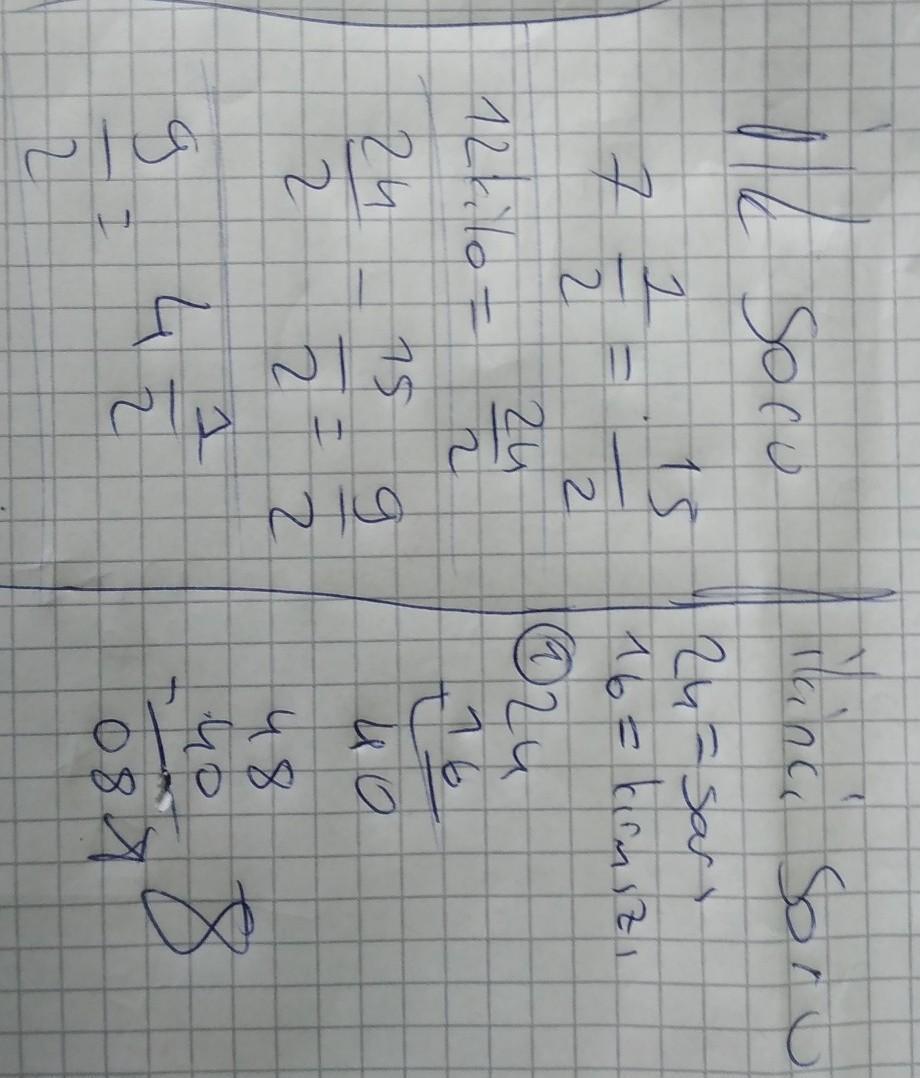 İlk Soru
7 1/2 = 15/2
12 kilo = 24/2
24/2 - 15/2 = 9/2
9/2 = 4 1/2
İkinci Soru
24 = Sarı
16 = kırmızı
① 24
+ 16
40
48
- 40
08
8